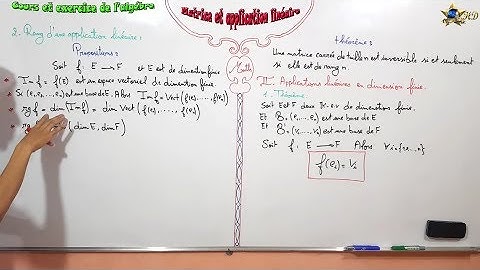 Cours et exercice de l'algèbre
Matrice et application linéaire
2. Rang d'une application linéaire :
Propositions :
Soit f : E → F et E est de dimension finie.
• Im f = f(E) est un espace vectoriel de dimension finie.
• Si (e₁, e₂, ..., eₙ) est une base de E. Alors Im f = Vect(f(e₁), ..., f(eₙ))
• rg f = dim(Im f) = dim Vect(f(e₁), ..., f(eₙ))
• rg (dim E, dim F)
Math
théorème :
Une matrice carrée de taille n est inversible si et seulement
si elle est de rang n.
III. Applications linéaires en dimension finie.
1. Théorème :
Soit E et F deux K-e.v de dimensions finie.
Et (e₁, ..., eₙ) est une base de E
Et (v₁, ..., vₙ) est une base de F
Soit f : E → F Alors ∀ i ∈ {1, ..., n}
f(eᵢ) = vᵢ